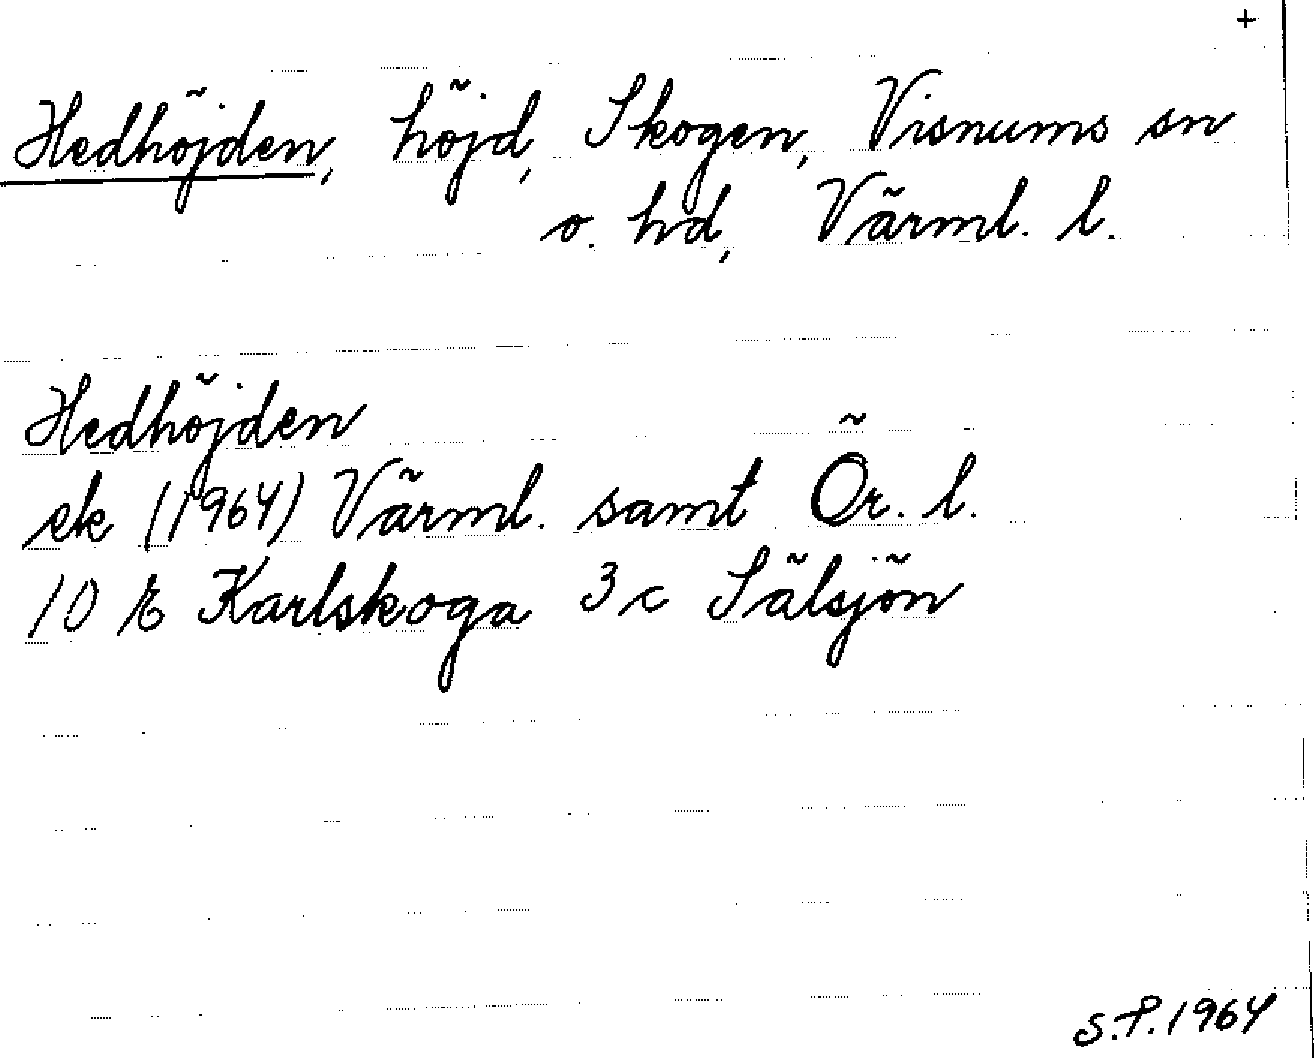 +
Hedhöjden, höjd, Skogen, Visnums sn
o. hd, Värml. l.
Hedhöjden
ek (1964) Värml. samt Ör. l.
10 E Karlskoga 3c Sälsjön
S.P. 1964